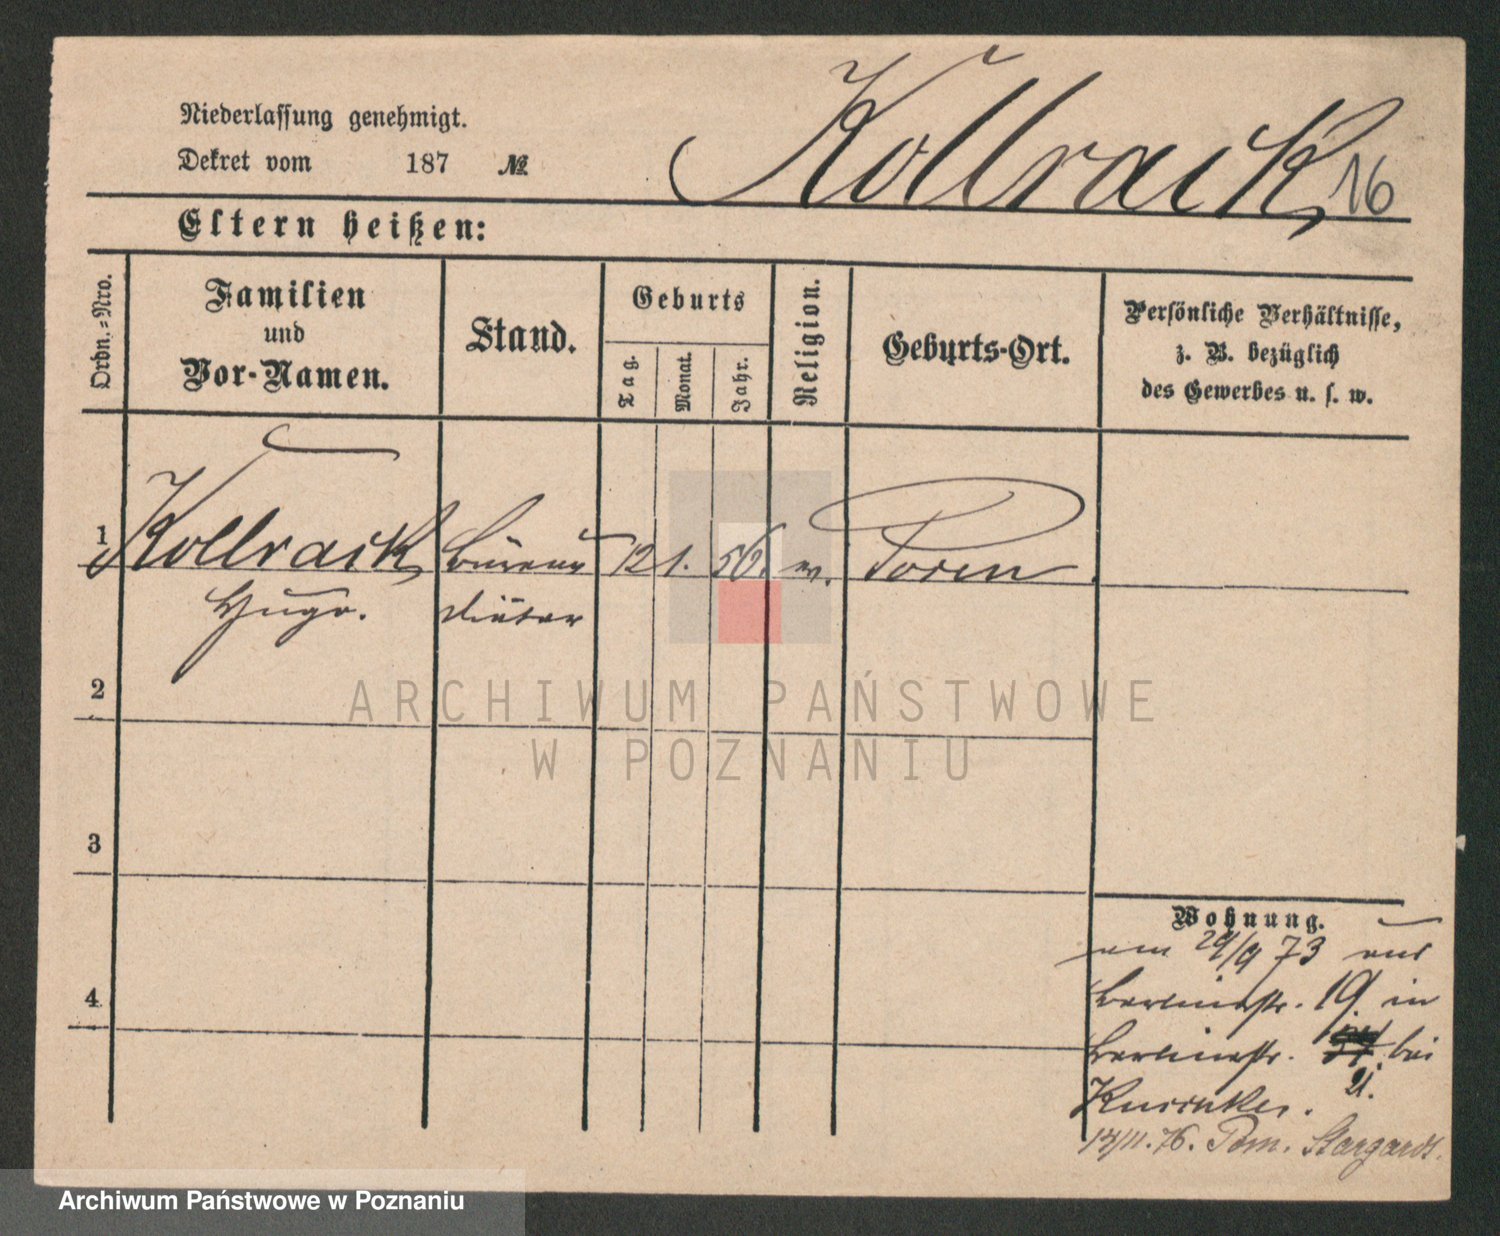 Niederlassung genehmigt.
Dekret vom 187 №
Kollrack 16
Eltern heißen:
Ordn.=Nro.
Familien
und
Vor-Namen.
Stand.
Geburts
Tag.
Monat.
Jahr.
Religion.
Geburts-Ort.
Persönliche Verhältnisse,
z. B. bezüglich
des Gewerbes u. s. w.
1 Kollrack Büreau 12 1. 56.
Hugo. Diätar
2
3
4
Wohnung.
am 29/9 73 aus
Berlinerstr. 19. in
Berlinerstr. bei
21.
14/11. 76. Pom. Stargard.
ARCHIWUM PAŃSTWOWE
W POZNANIU
Archiwum Państwowe w Poznaniu